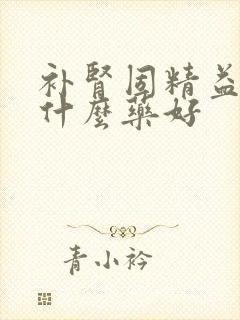 补腎固精益
什麼藥好
青小衿